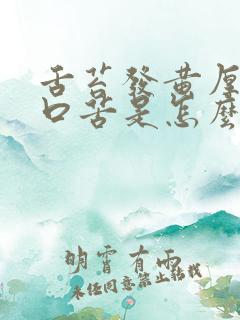 舌苔發黃厚
口苦是怎麼
明霄有雨
未经同意禁止转载